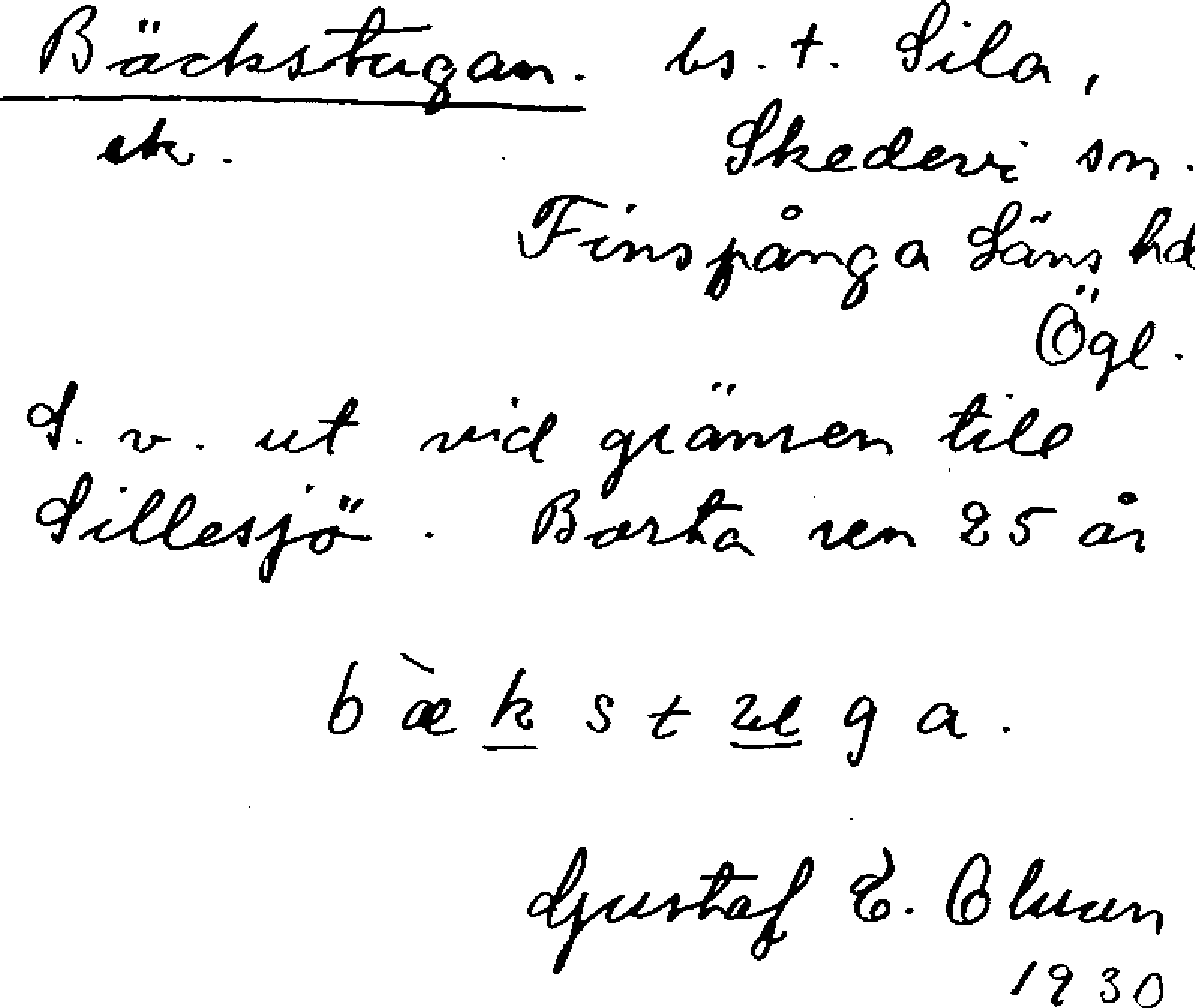 Bäckstugan. bs. t. Sila,
ek. Skedevi sn.
Finspånga Läns hd
Ögl.
S. v. ut vid gränsen till
Sillesjö. Borta sen 25 år
b æ̀ k s t u g a.
Gustaf E. Olsson
1930